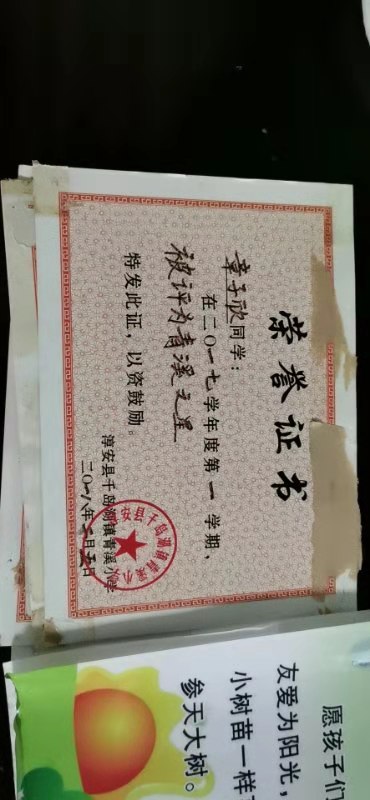 荣誉证书
章子欣同学:
在二〇一七学年度第一学期,
被评为青溪之星
特发此证,以资鼓励。
淳安县千岛湖镇青溪小学
二〇一八年二月五日
愿孩子们
友爱为阳光,
小树苗一样
参天大树。